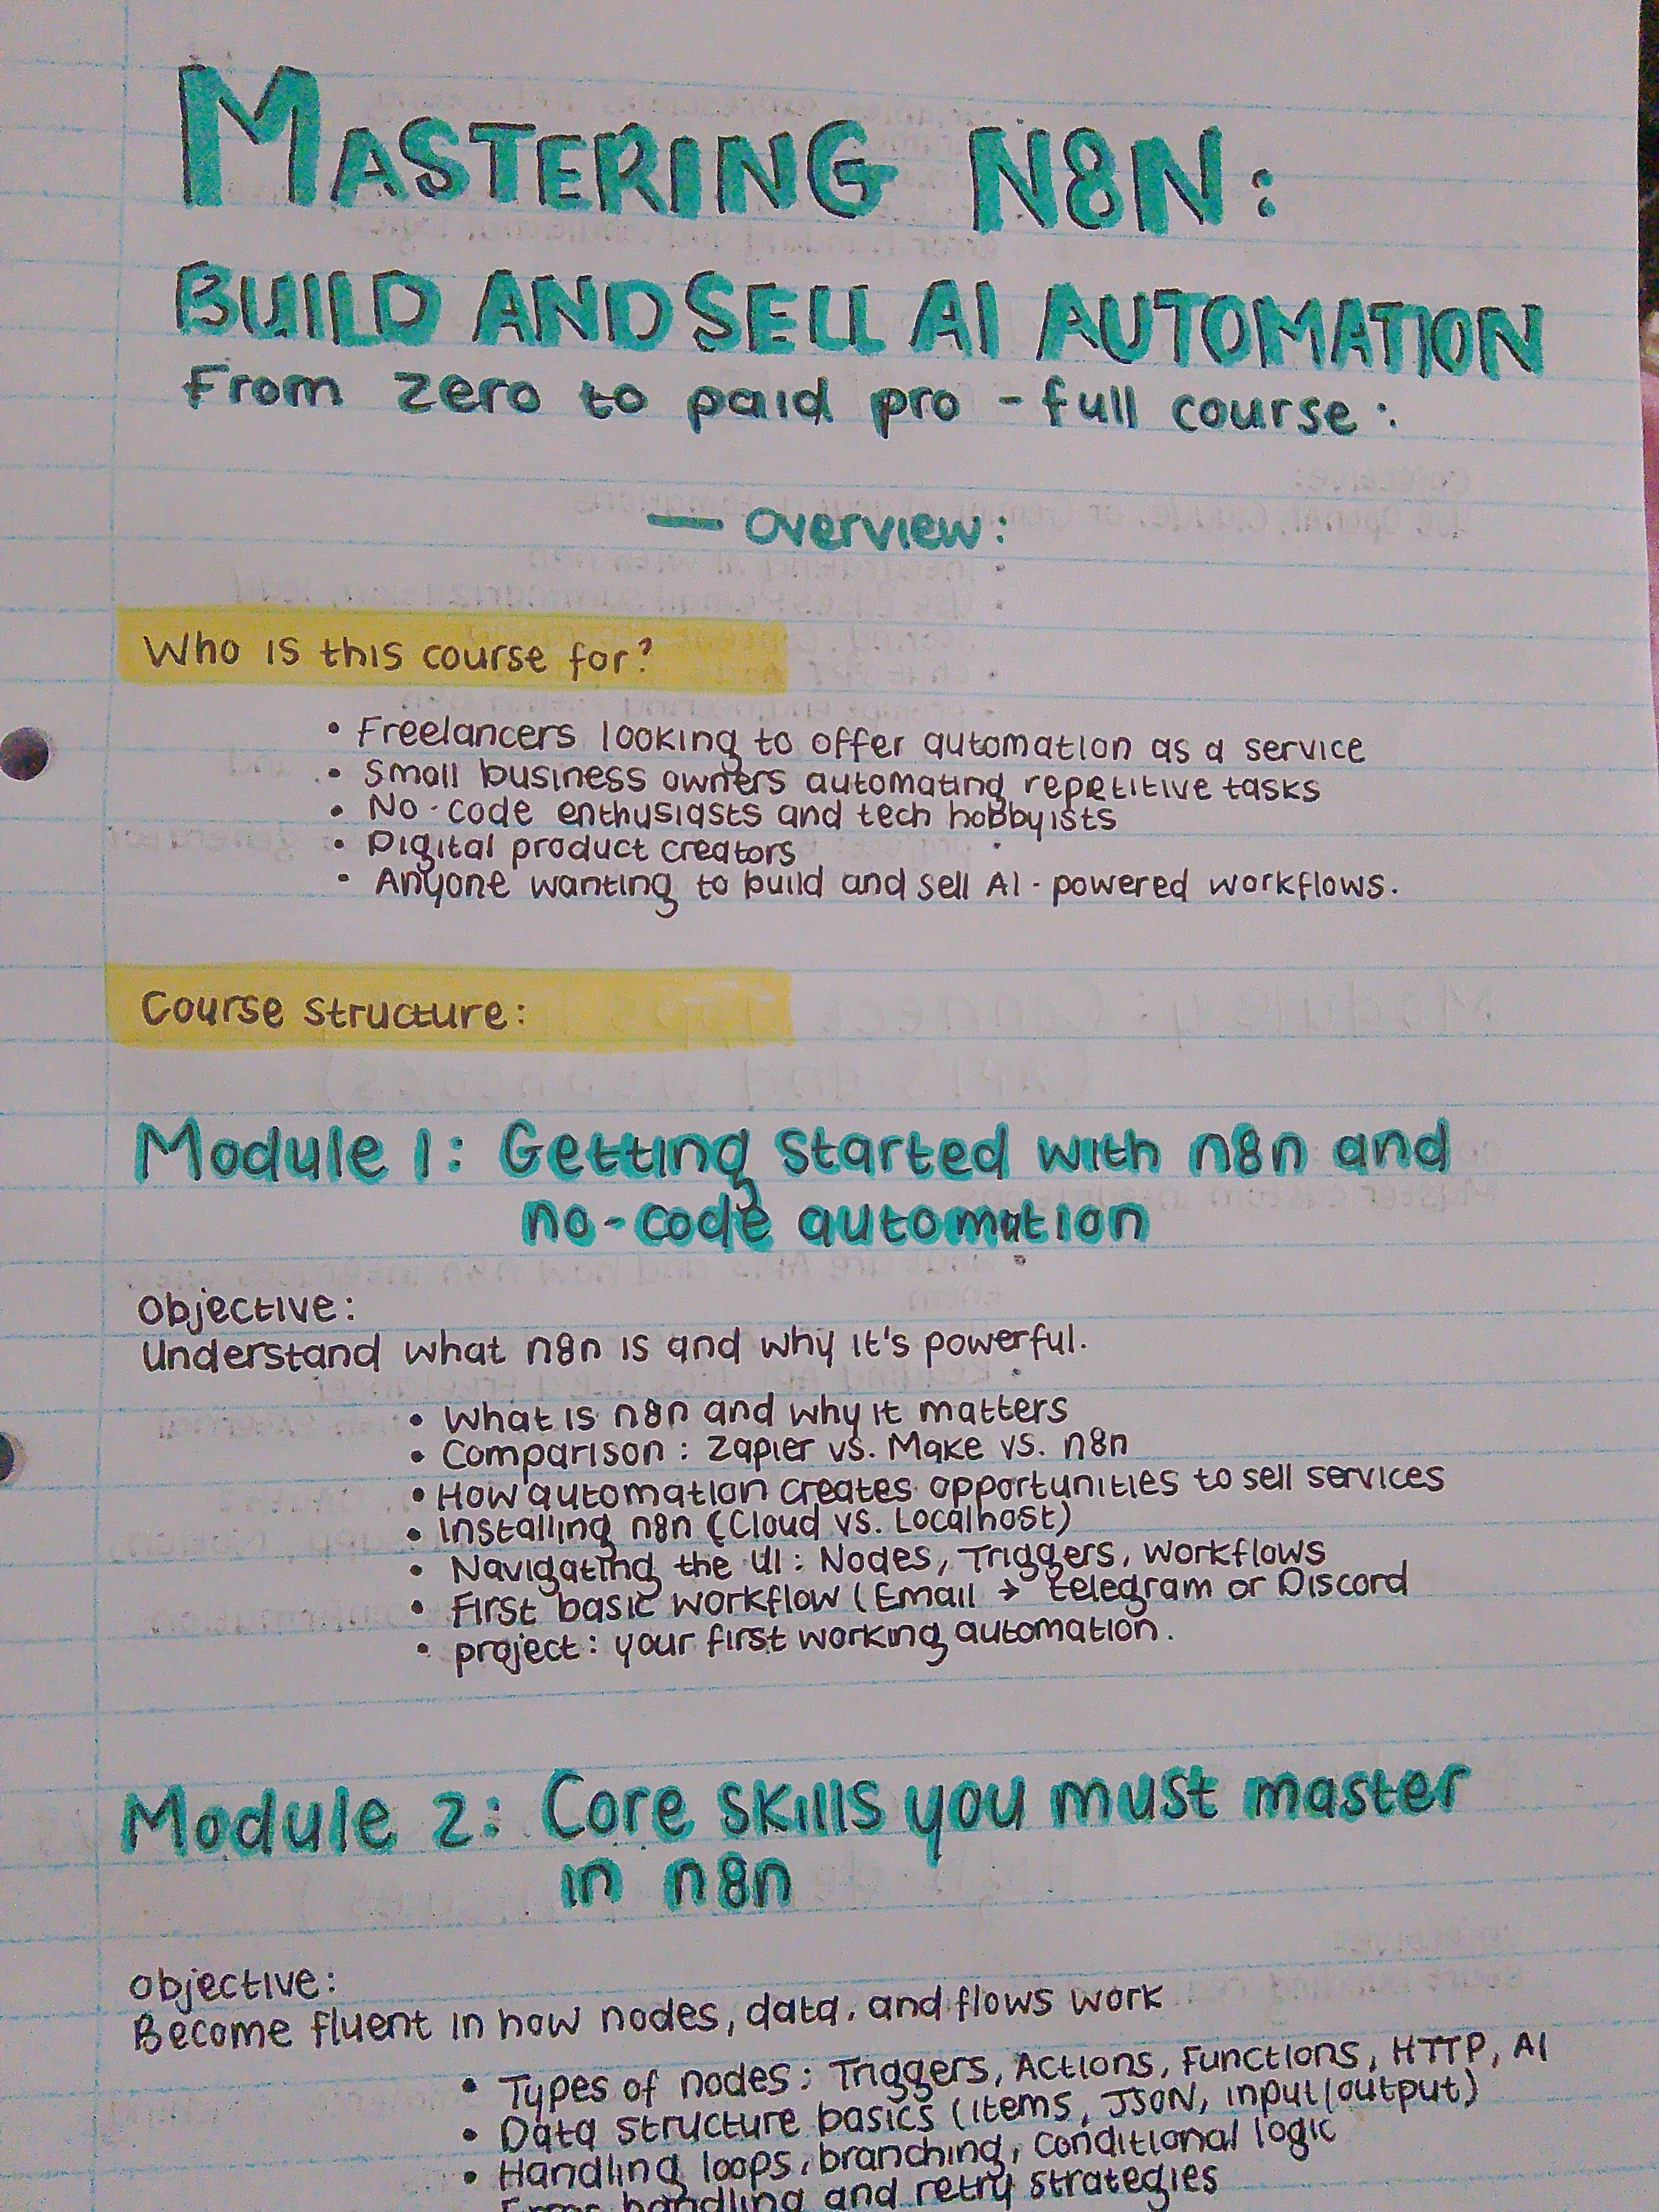 MASTERING N8N:
BUILD AND SELL AI AUTOMATION
From zero to paid pro - full course:
— Overview:
Who is this course for?
• Freelancers looking to offer automation as a service
• Small business owners automating repetitive tasks
• No-code enthusiasts and tech hobbyists
• Digital product creators
• Anyone wanting to build and sell AI-powered workflows.
Course structure:
Module 1: Getting started with n8n and
no-code automation
Objective:
Understand what n8n is and why it's powerful.
• What is n8n and why it matters
• Comparison: Zapier vs. Make vs. n8n
• How automation creates opportunities to sell services
• Installing n8n (Cloud vs. Localhost)
• Navigating the UI: Nodes, Triggers, Workflows
• First basic workflow (Email → telegram or Discord
• project: your first working automation.
Module 2: Core skills you must master
in n8n
Objective:
Become fluent in how nodes, data, and flows work
• Types of nodes: Triggers, Actions, Functions, HTTP, AI
• Data structure basics (items, JSON, input/output)
• Handling loops, branching, conditional logic
Error handling and retry strategies